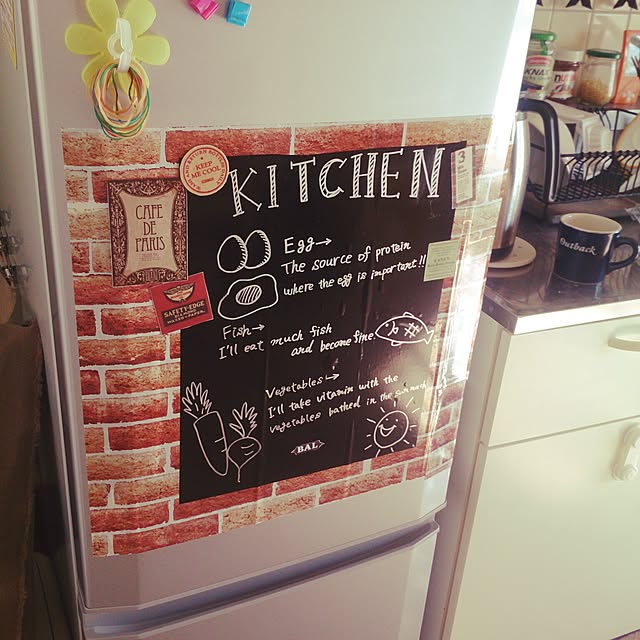 KEEP
ME COOL
KITCHEN
3
CAFE
DE
PARIS
Egg→
The source of protein
where the egg is important!!
SAFETY-EDGE
WAXED-PAPER
Fish→
I'll eat much fish
and become fine.
Vegetables→
I'll take vitamin with the
vegetables bathed in the sun much
BAL
Outback
KNA
nu